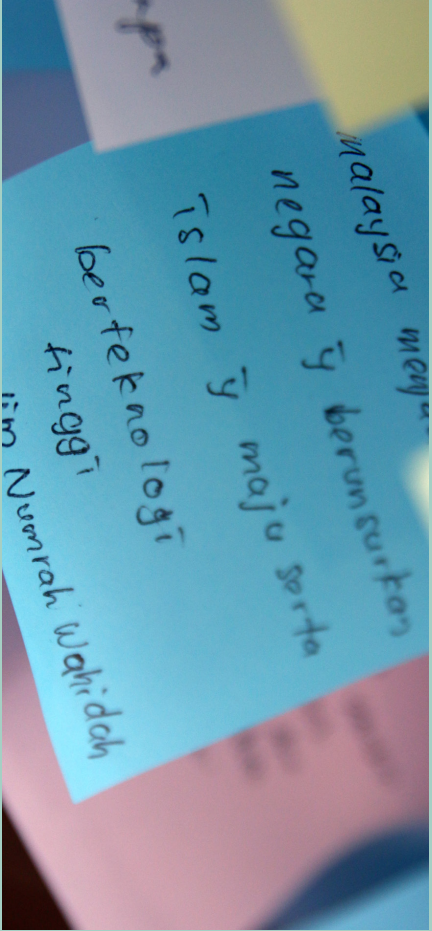 malaysia
negara ȳ berunsurkan
islam ȳ maju serta
berteknologi
tinggi
Numrah Wahidah